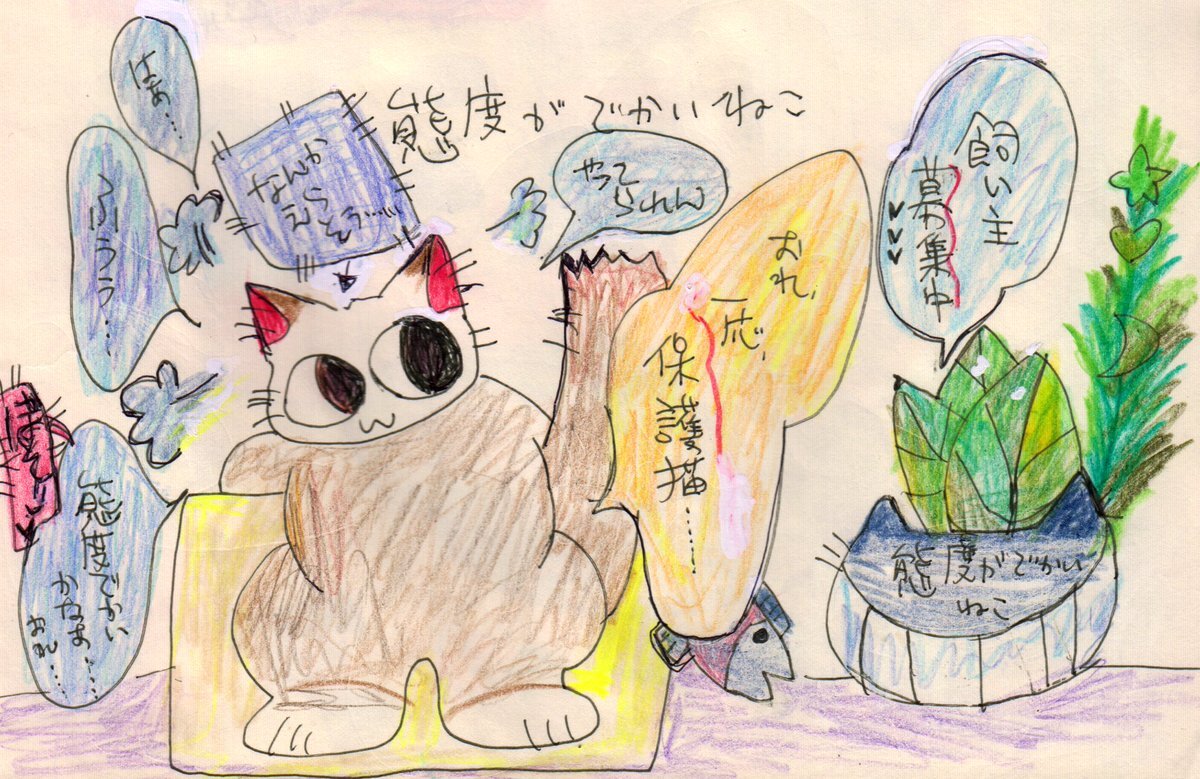 態度がでかいねこ
はあ……
ふうう…
なんか
えらそう……
やって
られれん
おれ、
一応、
保護猫……
飼い主
募集中
態度でかい
かなぁ…
おれ……
態度がでかい
ねこ